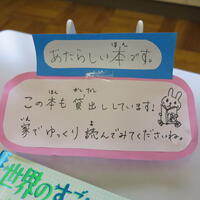 あたらしい本です。
この本も貸出ししています♪
家でゆっくり読んでみてくださいね。
世界の